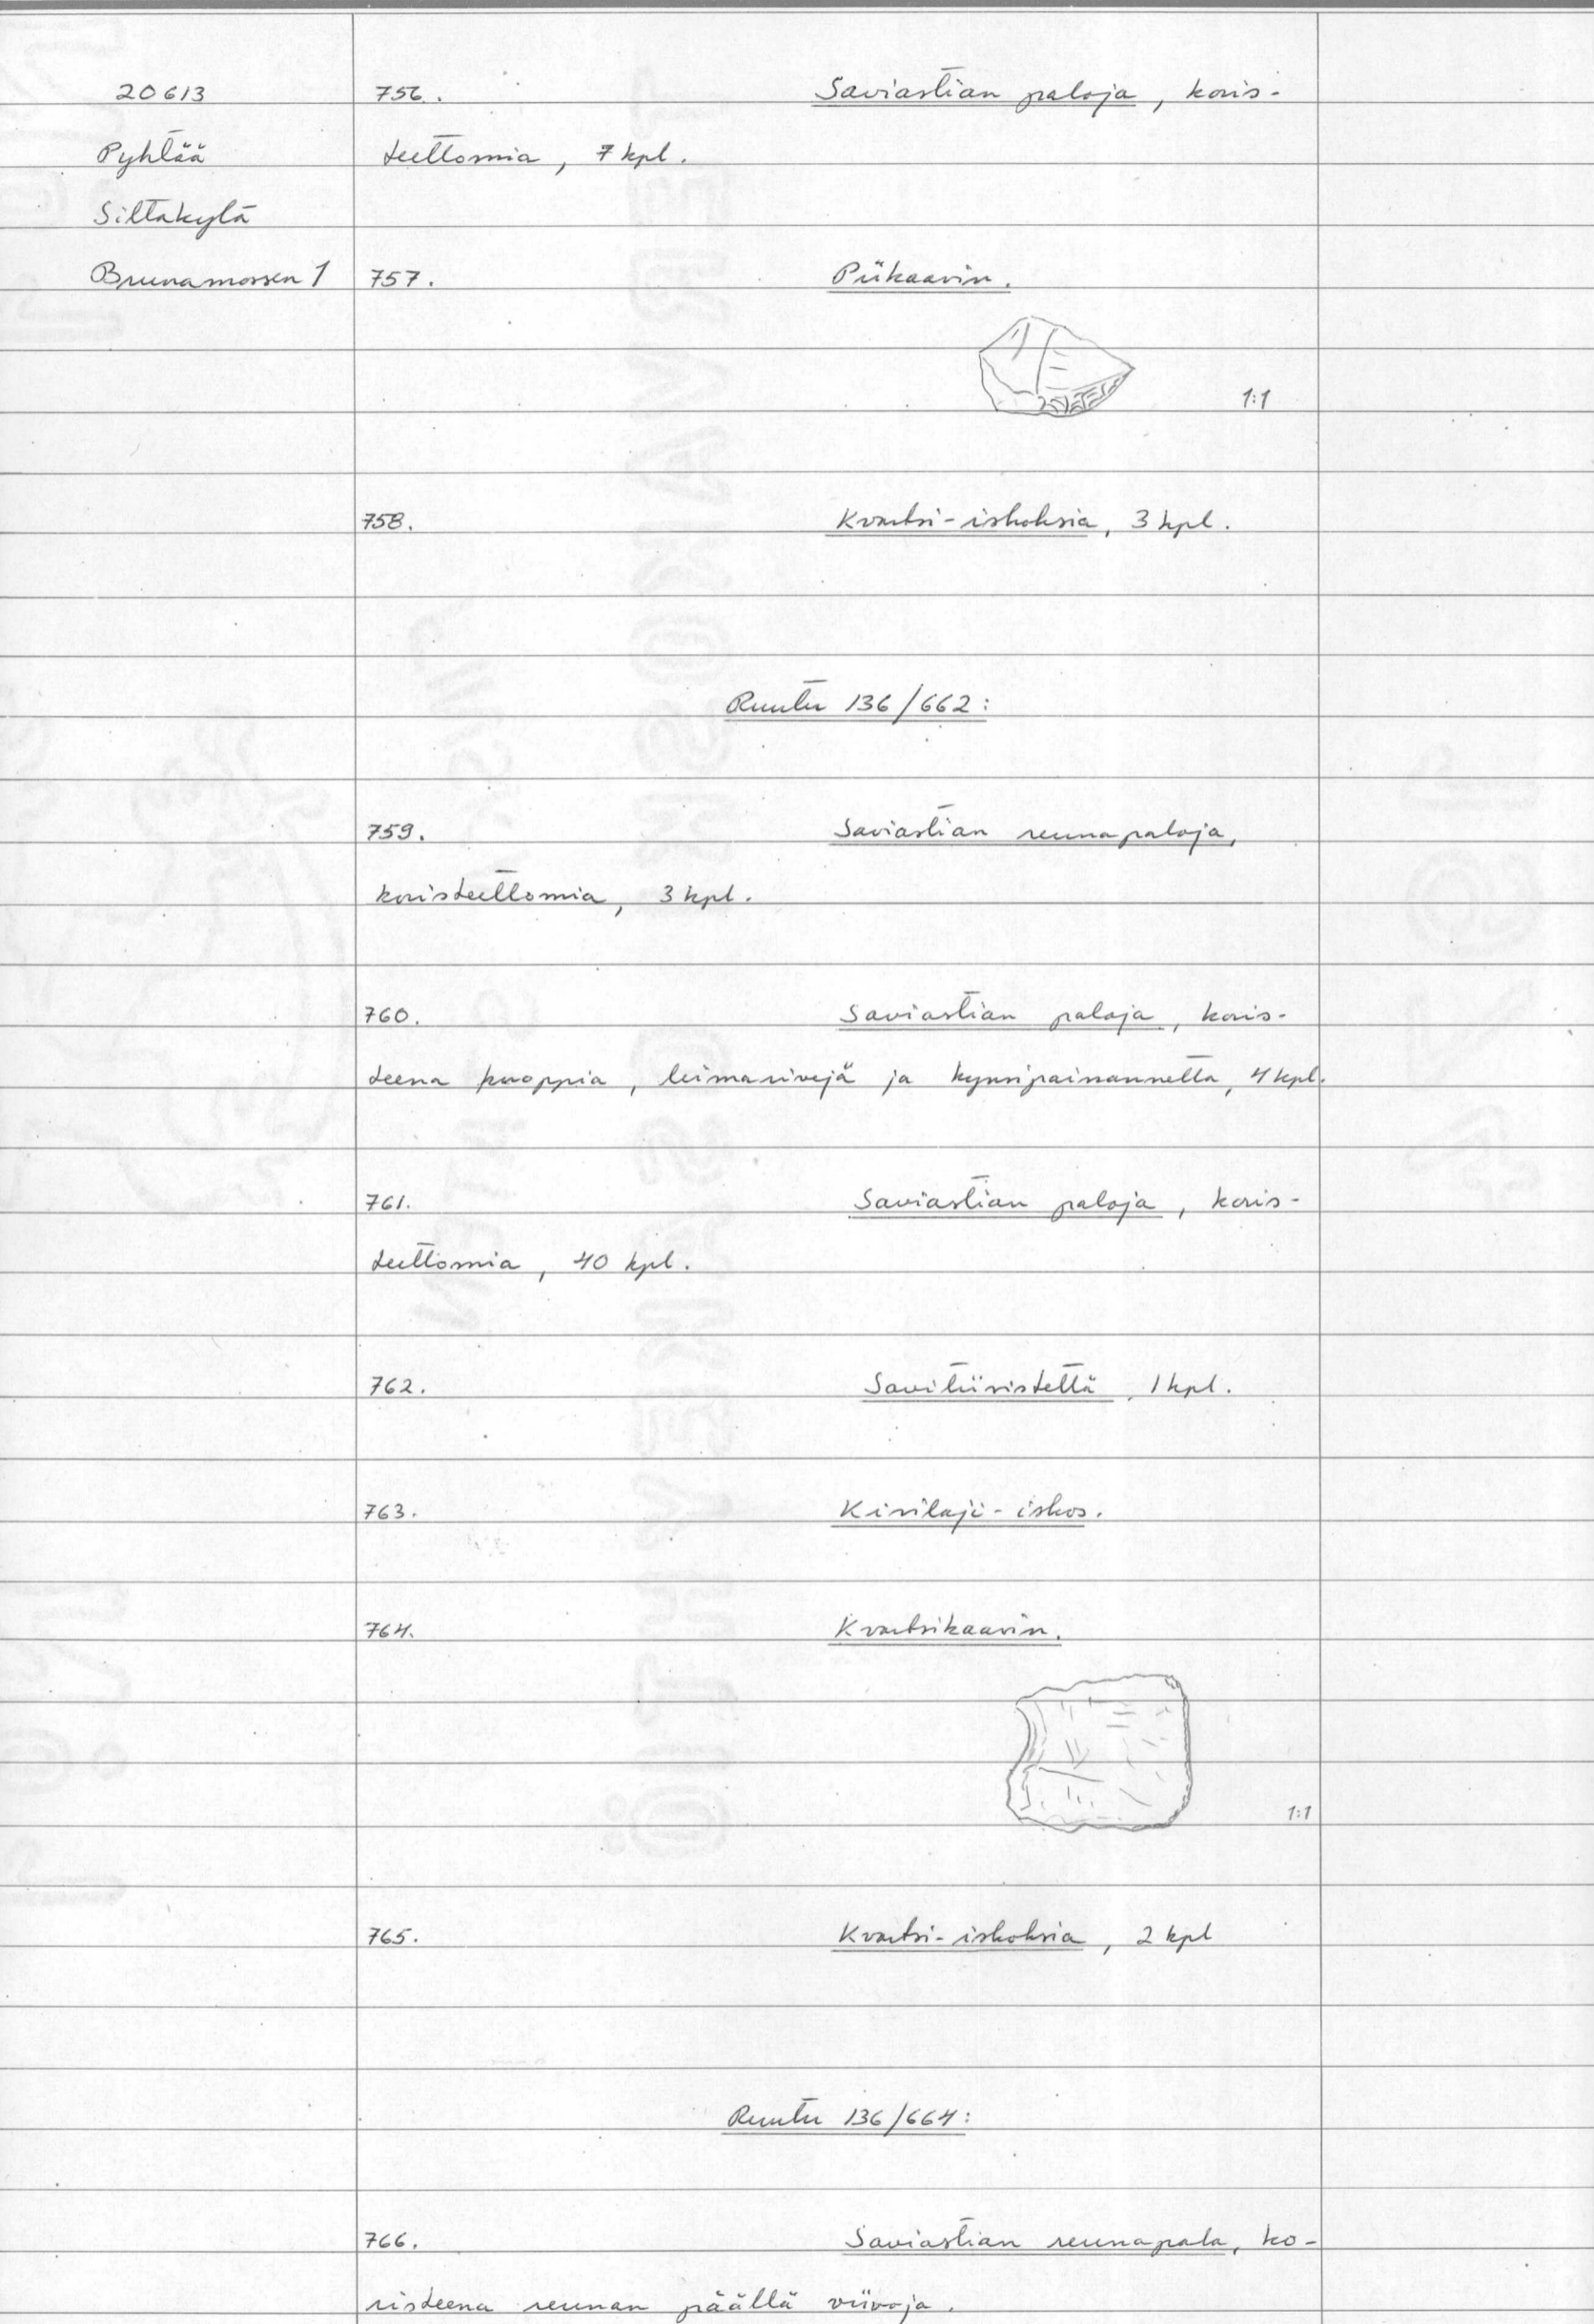 20613 756. Saviastian paloja, koris-
Pyhtää teettomia, 7 kpl.
Siltakylä
Brunamossen 1 757. Piikaavin.
1:1
758. Kvartsi-iskoksia, 3 kpl.
Ruutu 136/662:
759. Saviastian reunapaloja,
koristeettomia, 3 kpl.
760. Saviastian paloja, koris-
teena kuoppia, leimarivejä ja kynsipainannetta, 4 kpl.
761. Saviastian paloja, koris-
teettomia, 40 kpl.
762. Savitiivistettä, 1 kpl.
763. Kivilaji-iskos.
764. Kvartsikaavin.
1:1
765. Kvartsi-iskoksia, 2 kpl
Ruutu 136/664:
766. Saviastian reunapala, ko-
risteena reunan päällä viivoja.